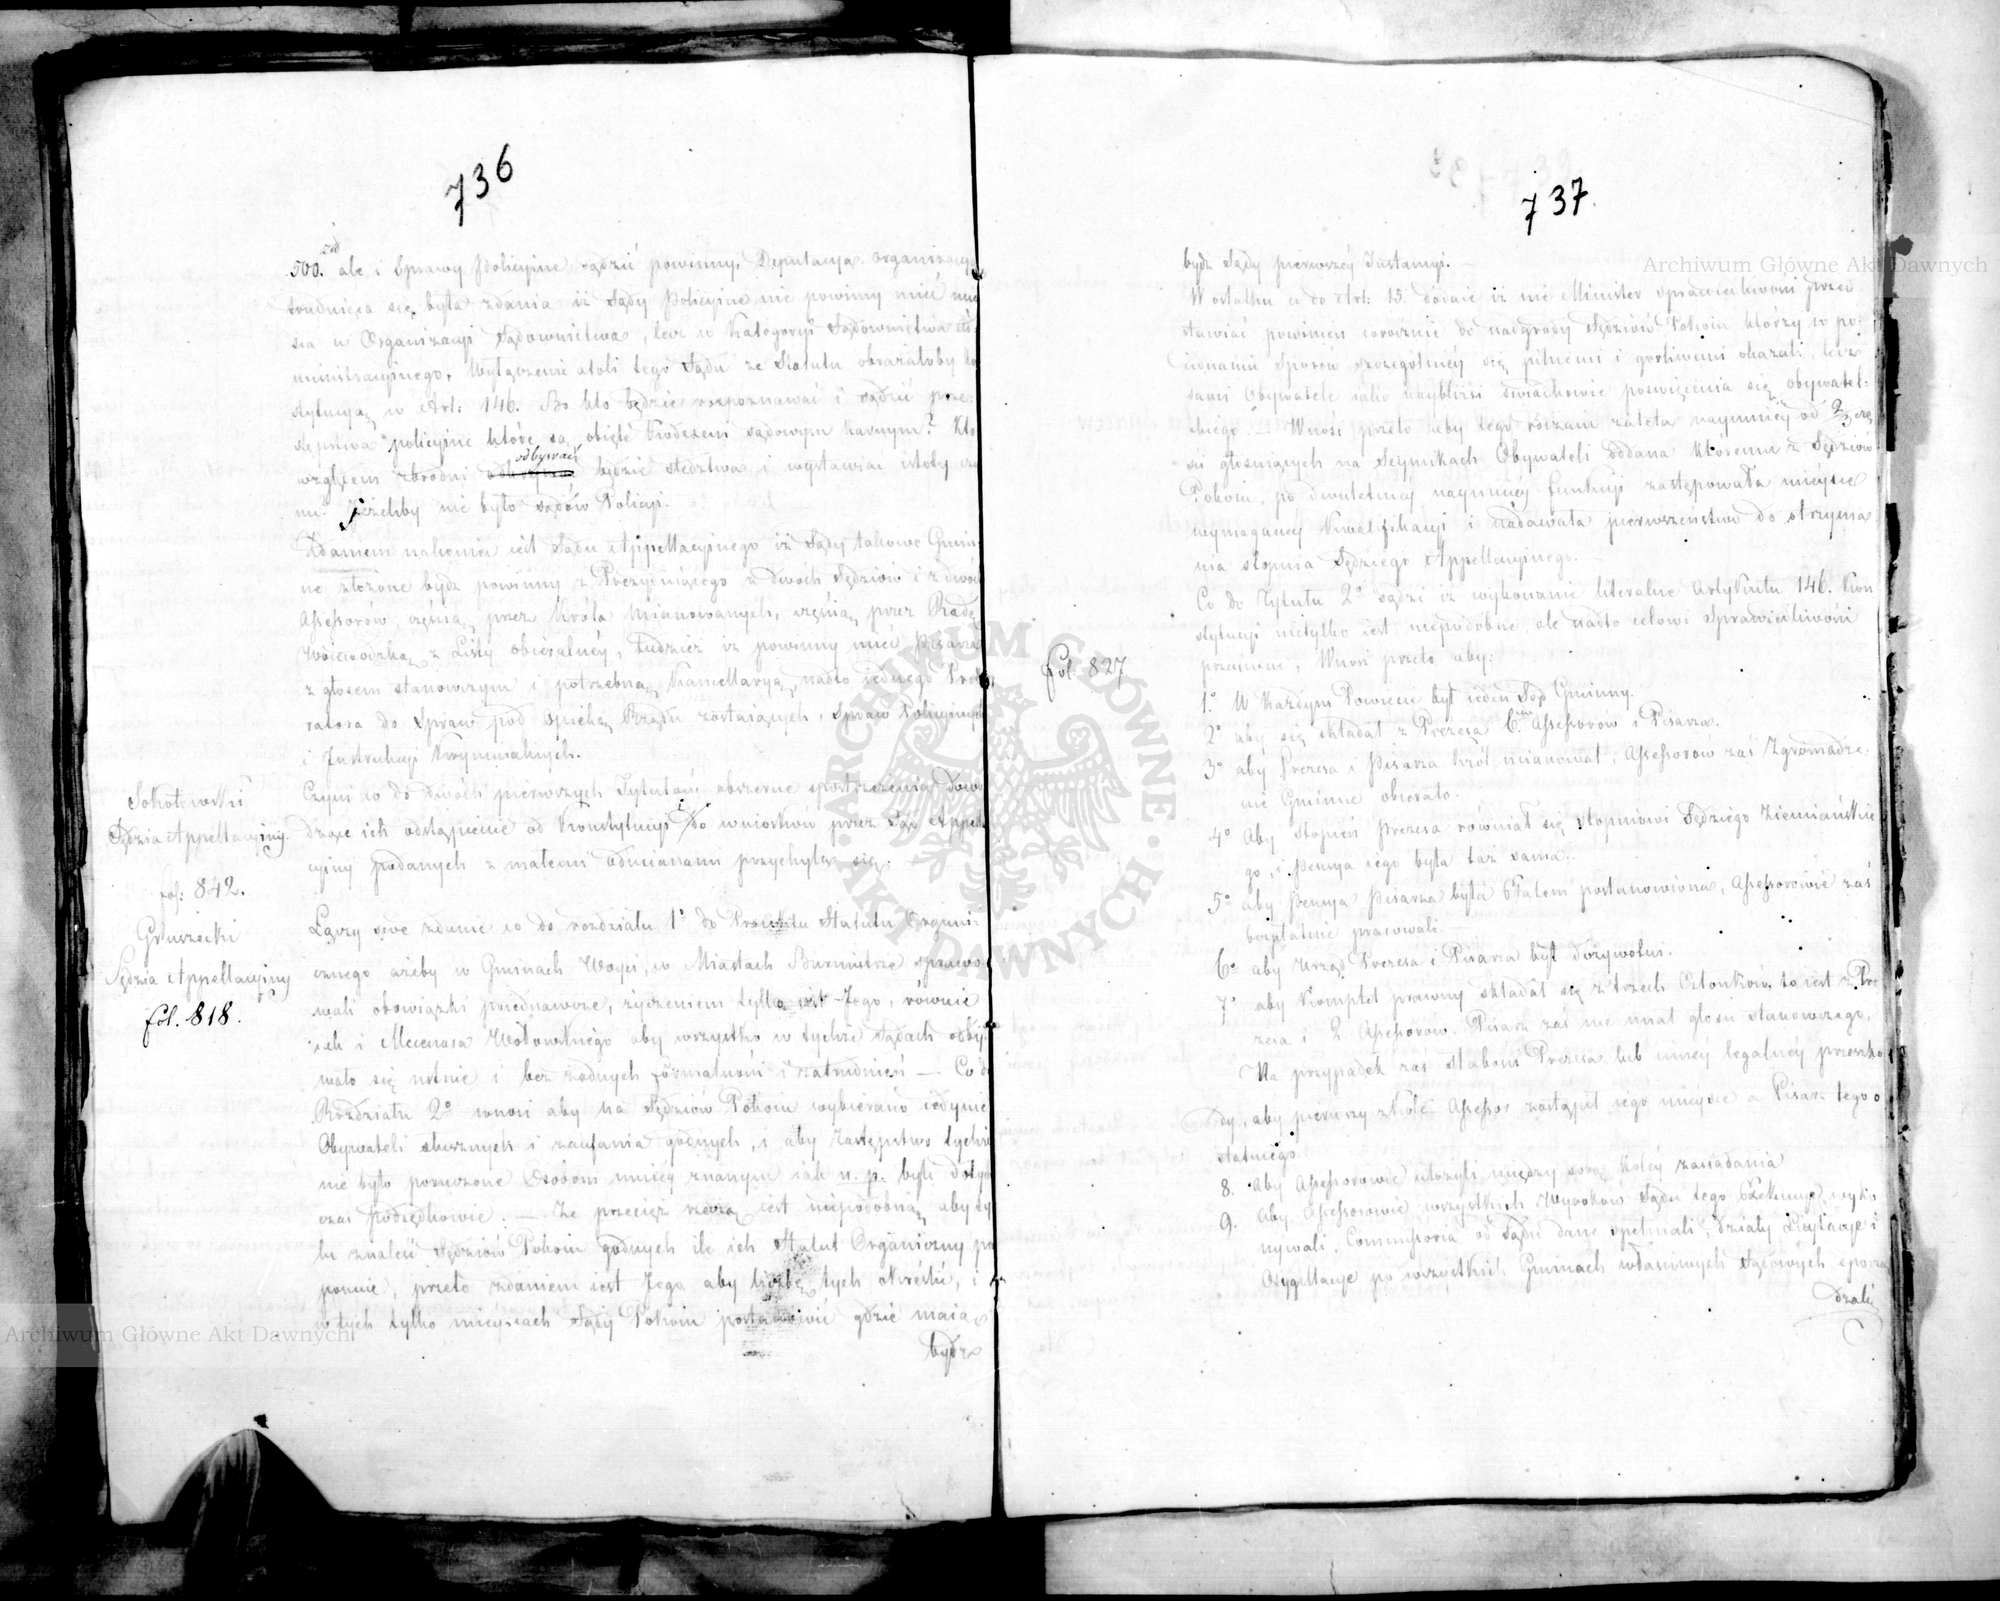 736
500. złł ale i Sprawy Policyjne sądzić powinny. Deputacya Organizacyą
trudniąca się była zdania iż Sądy Policyine nie powinny mieć miey
sca w Organizacyi Sądownictwa, lecz w Kategoryi Sądownictwa Ad
ministracyinego. Wyłączenie atoli tego Sądu ze Statutu obrażałoby Kon
stytucyą w Art: 146. Bo kto będzie rozpoznawać i sądzić prze-
stępstwa policyine które są obięte Kodexem sądowym karnym? Kto
względem zbrodni odbywać będzie śledztwa i wystawiać istoty czy
nu? Jeżeliby nie było sądów Policyi.
Zdaniem nakoniec iest Sądu Appellacyinego iż Sądy takowe Gmin-
ne złożone bydź powinny z Prezyduiącego z dwóch Sędziów i z dwóch
Assessorów, częścią przez Króla mianowanych, częścią przez Radę
Woiewódzką z Listy obieralney, tudzież iż powinny mieć Pisarza
z głosem stanowczym i potrzebną Kancellaryą, nadto iednego Proku
ratora do Spraw pod opieką Rządu zostaiących, Spraw Policyinych
i Instrukcyi Kryminalnych.
Sokołowski
Sędzia Appellacyiny.
fol: 842.
Czyni co do dwóch pierwszych Tytułów obszerne spostrzeżenia dowo
dzące ich odstąpienie od Konstytucyi i do wniosków przez Sąd Appella
cyiny podanych z małemi odmianami przychyla się.
Gruzecki
Sędzia Appellacyiny
fol. 818.
Łączy swe zdanie co do rozdziału 1° do Proiektu Statutu Organi-
cznego ażeby w Gminach Woyci, w Miastach Burmistrze sprawo
wali obowiązki poiednawcze, życzeniem tylko iest Jego, równie
iak i Mecenasa Wołowskiego aby wszystko w tychże Sądach odby
wało się ustnie i bez żadnych formalności i zatrudnień — Co do
Rozdziału 2° wnosi aby na Sędziów Pokoiu wybierano iedynie
Obywateli słusznych i zaufania godnych, i aby Zastępstwo tychże
nie było poruczone Osobom mniey znanym iak n. p. byli dotych
czas Podsędkowie. — Że przecież rzeczą iest niepodobną aby ty
lu znaleść Sędziów Pokoiu godnych ile ich Statut Organiczny po
, przeto zdaniem iest Jego aby liczbę tych określić, i
w tych tylko mieyscach Sądy Pokoiu postanowić gdzie maią
bydź
737.
bydź Sądy pierwszey Instancyi.
W ostatku co do Art: 15. dodaie iż nie Minister Sprawiedliwości przed
stawiać powinien corocznie do nadgrody Sędziów Pokoiu którzy w po-
iednaniu Sporów szczególniey się pilnemi i gorliwemi okazali, lecz
sami Obywatele iako naybliżsi świadkowie poświęcenia się obywatel-
skiego — Wnosi przeto aby tego rodzaiu zaleta naymniey od 2/3 czę
ści głosuiących na Seymikach Obywateli oddana któremu z Sędziów
Pokoiu, po dwuletniey naymniey funkcyi zastępowała mieysce
wymaganey Kwalifikacyi i nadawała pierwszeństwo do otrzyma
nia stopnia Sędziego Appellacyinego. —
fol. 827
Co do Tytułu 2° sądzi iż wykonanie literalne Artykułu 146. Kon
stytucyi nietylko iest niepodobne, ale nadto celowi Sprawiedliwości
przeciwne, Wnosi przeto aby:
1° W każdym Powiecie był ieden Sąd Gminny.
2° aby się składał z Prezesa 6ciu Assessorów i Pisarza.
3° aby Prezesa i Pisarza Król mianował, Assessorów zaś Zgromadze-
nie Gminne obierało.
4° Aby stopień Prezesa równiał się stopniowi Sędziego Ziemiańskie
go, i Pensya iego była taż sama.
5° aby Pensya Pisarza była Etatem postanowiona, Assessorowie zaś
bezpłatnie pracowali.
6° aby Urząd Prezesa i Pisarza był dożywotni.
7° aby Komplet prawny składał się z trzech Członków, to iest z Pre
zesa i 2 Assessorów. Pisarz zaś nie miał głosu stanowczego,
Na przypadek zaś słabości Prezesa lub inney legalney przeszko
dy, aby pierwszy z kolei Assessor zastąpił iego mieysce a Pisarz tego o
statniego.
8. Aby Assessorowie ułożyli między sobą koley zasiadania
9. Aby Assessorowie wszystkich Wyroków Sądu tego Exekucye wyko
nywali, Commissoria od Sądu dane spełniali, Działy Licytacye i
Oxygillacye po wszystkich Gminach własnych Sądowych sporzą
dzali
Archiwum Główne Akt Dawnych
ARCHIWUM GŁÓWNE AKT DAWNYCH
Archiwum Główne Akt Dawnych